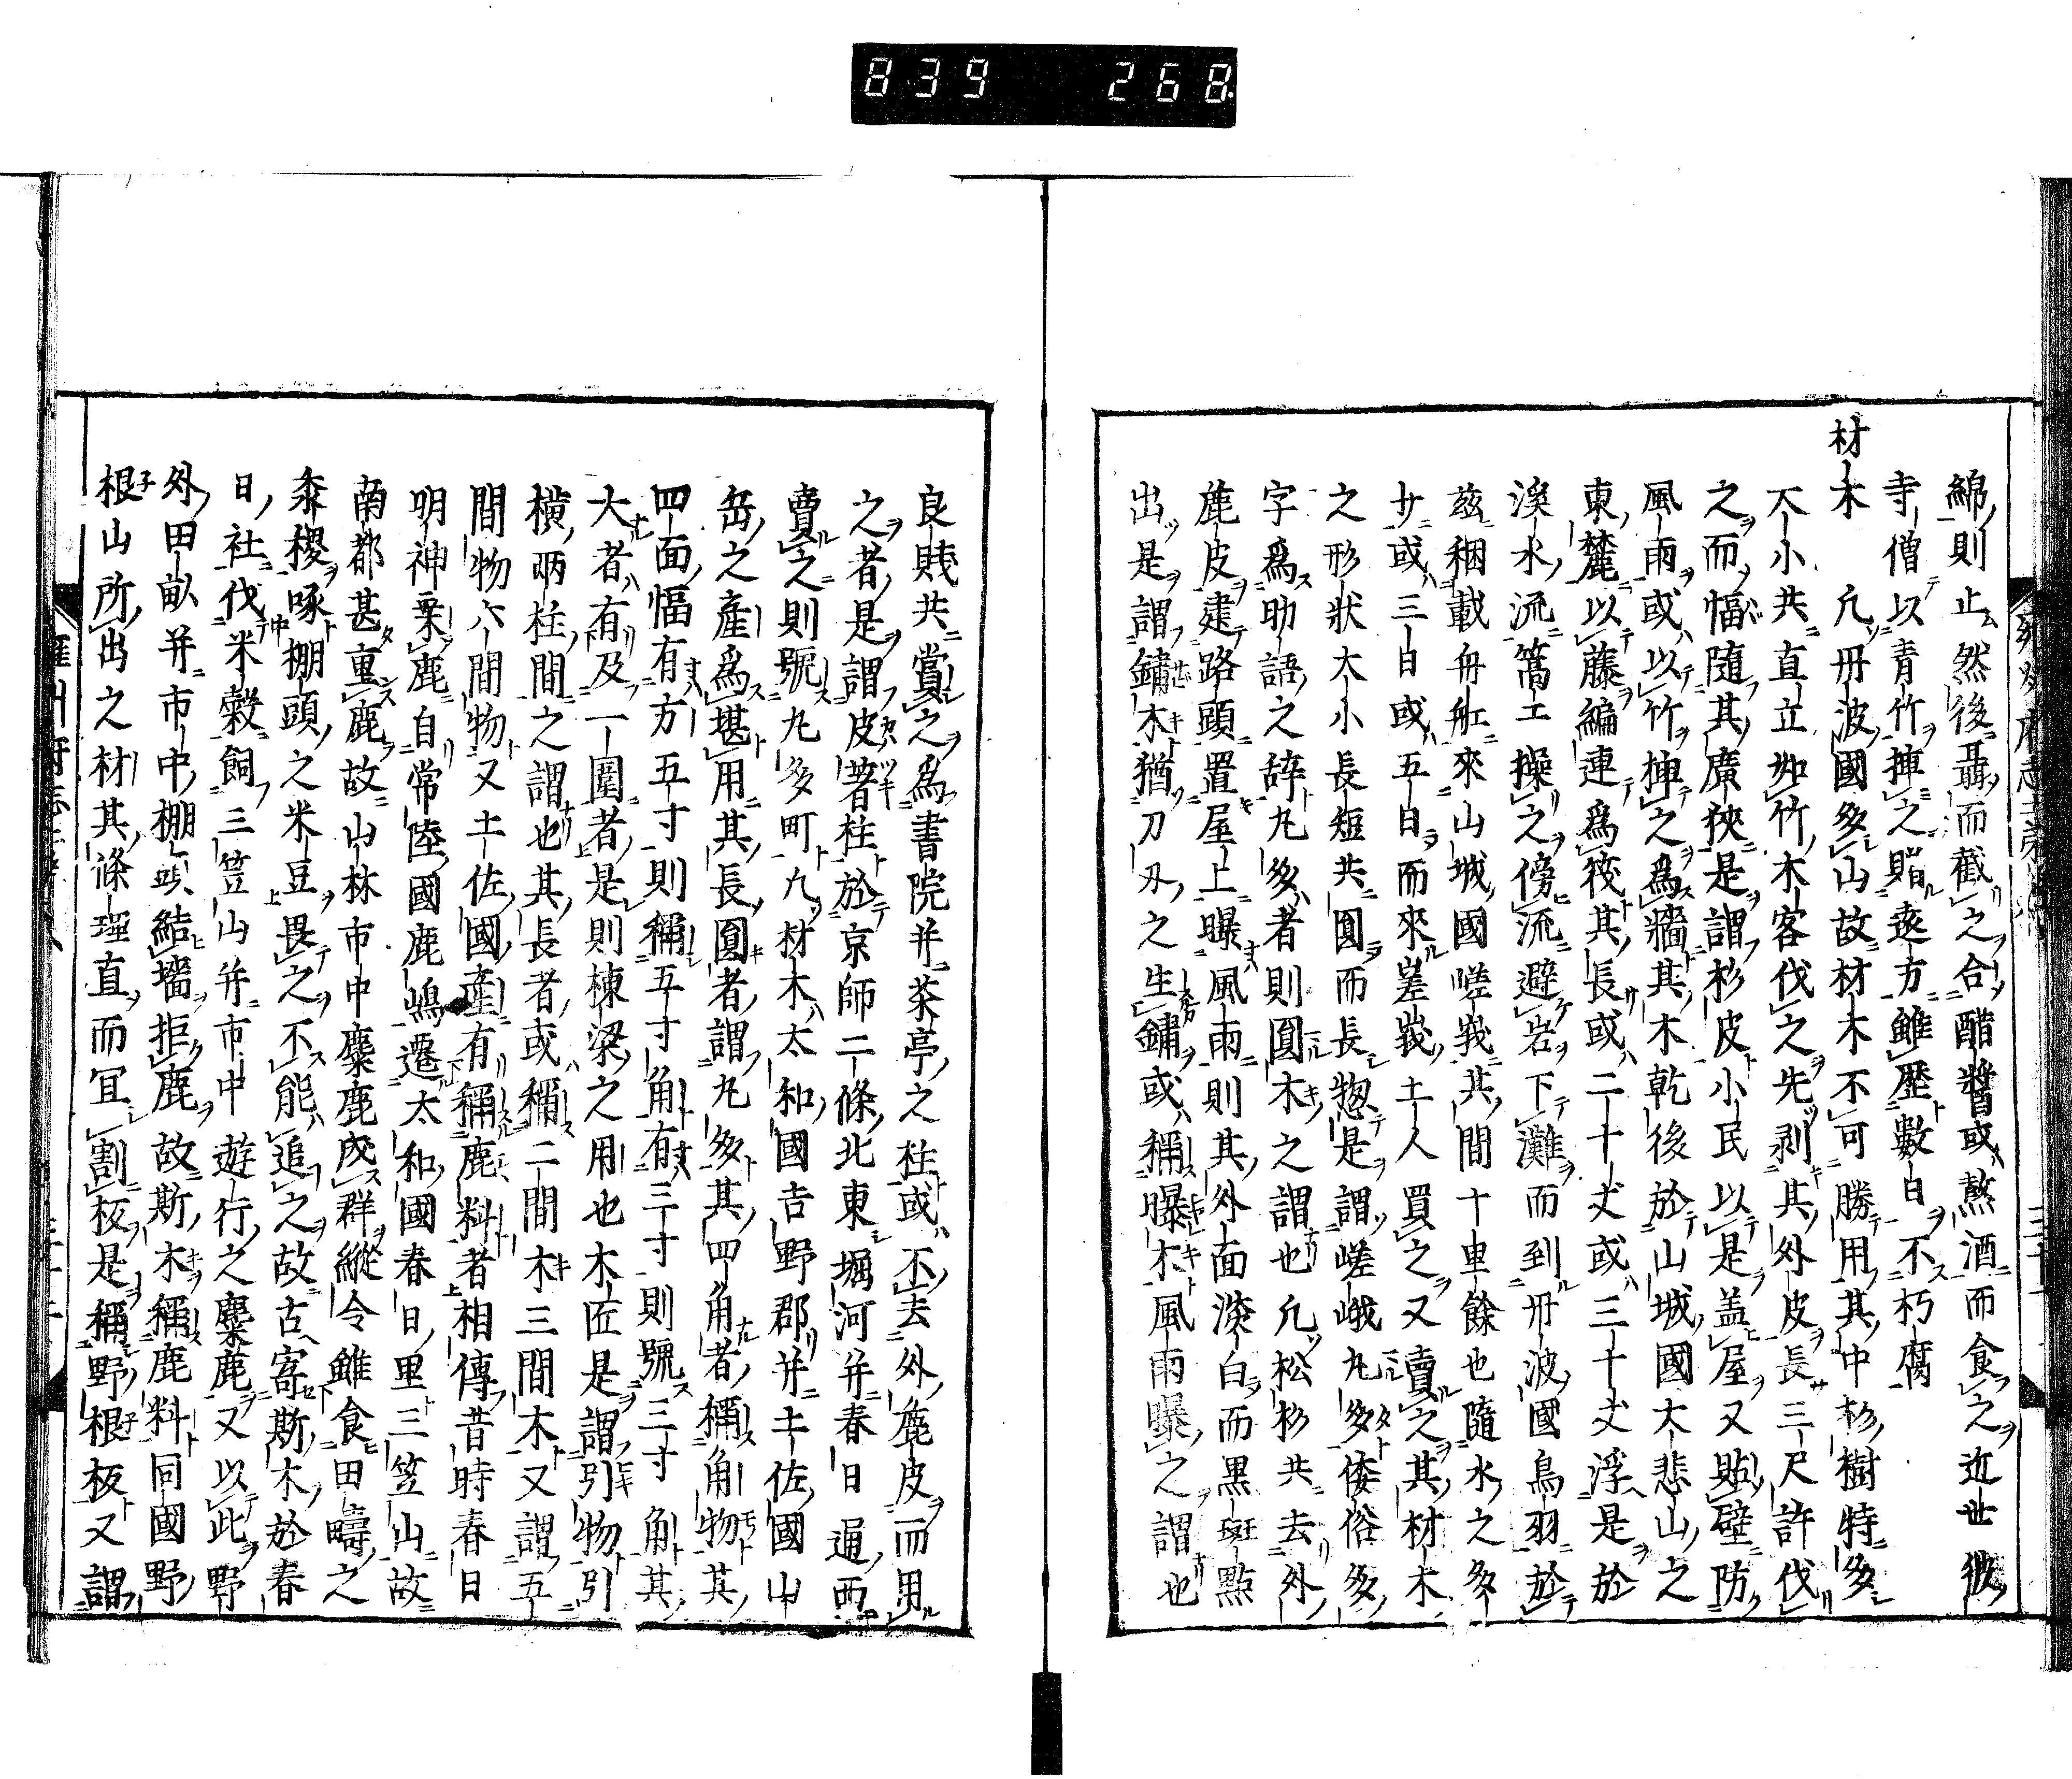 839 268
綿則止然後聶而截之合醋醬或熬酒而食之近世彼
寺僧以青竹揷之贈遠方雖歷數日不朽腐
材木 凡丹波國多山故材木不可勝用其中杉樹特多
大小共直立如竹木客伐之先剥其外皮長三尺許伐
之而幅隨其廣狹是謂杉皮小民以是盖屋又貼壁防
風雨或以竹揷之爲牆其木乾後於山城國大悲山之
東麓以藤編連爲筏其長或二十丈或三十丈浮是於
溪水流篙工操之傍流避岩下灘而到丹波國鳥羽於
茲稛載舟舩來山城國嵯峩其間十里餘也隨水之多
少或三日或五日而來嵳峩土人買之又賣之其材木
之形狀大小長短共圓而長惣是謂嵯峨丸多倭俗多
字爲助語之辞丸多者則圓木之謂也凡松杉共去外
麁皮建路頭置屋上曝風雨則其外面淡白而黒斑點
出是謂鏽木猶刀刃之生鏽或稱曝木風雨曝之謂也
良賎共賞之爲書院并茶亭之柱或不去外麁皮而用
之者是謂皮著柱於京師二條北東堀河并春日通西
賣之則號丸多町凡材木太和國吉野郡并土佐國山
缶之產爲堪用其長圓者謂丸多其四角者稱角物其
四面幅有方五寸則稱五寸角有三寸則號三寸角其
大者有及一圍者是則棟梁之用也木匠是謂引物引
橫兩柱間之謂也其長者或稱二間木三間木又謂五
間物六間物又土佐國產有稱鹿料者相傳昔時春日
明神乗鹿自常陸國鹿嶋遷太和國春日里三笠山故
南都甚重鹿故山林市中麋鹿成群縱令雖食田疇之
黍稷啄棚頭之米豆畏之不能追之故古寄斯木於春
日社伐米糓飼三笠山并市中遊行之麋鹿又以此野
外田畝并市中棚頭結墻拒鹿故斯木稱鹿料同國野
根山所出之材其條理直而冝割板是稱野根板又謂